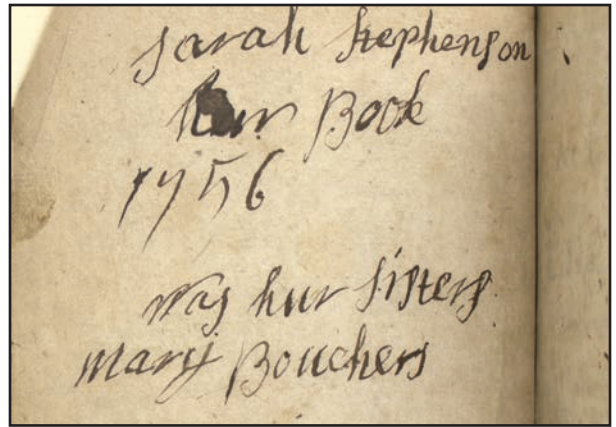 sarah stephenson
hur Book
1756
was hur sisters
mary Bouchers